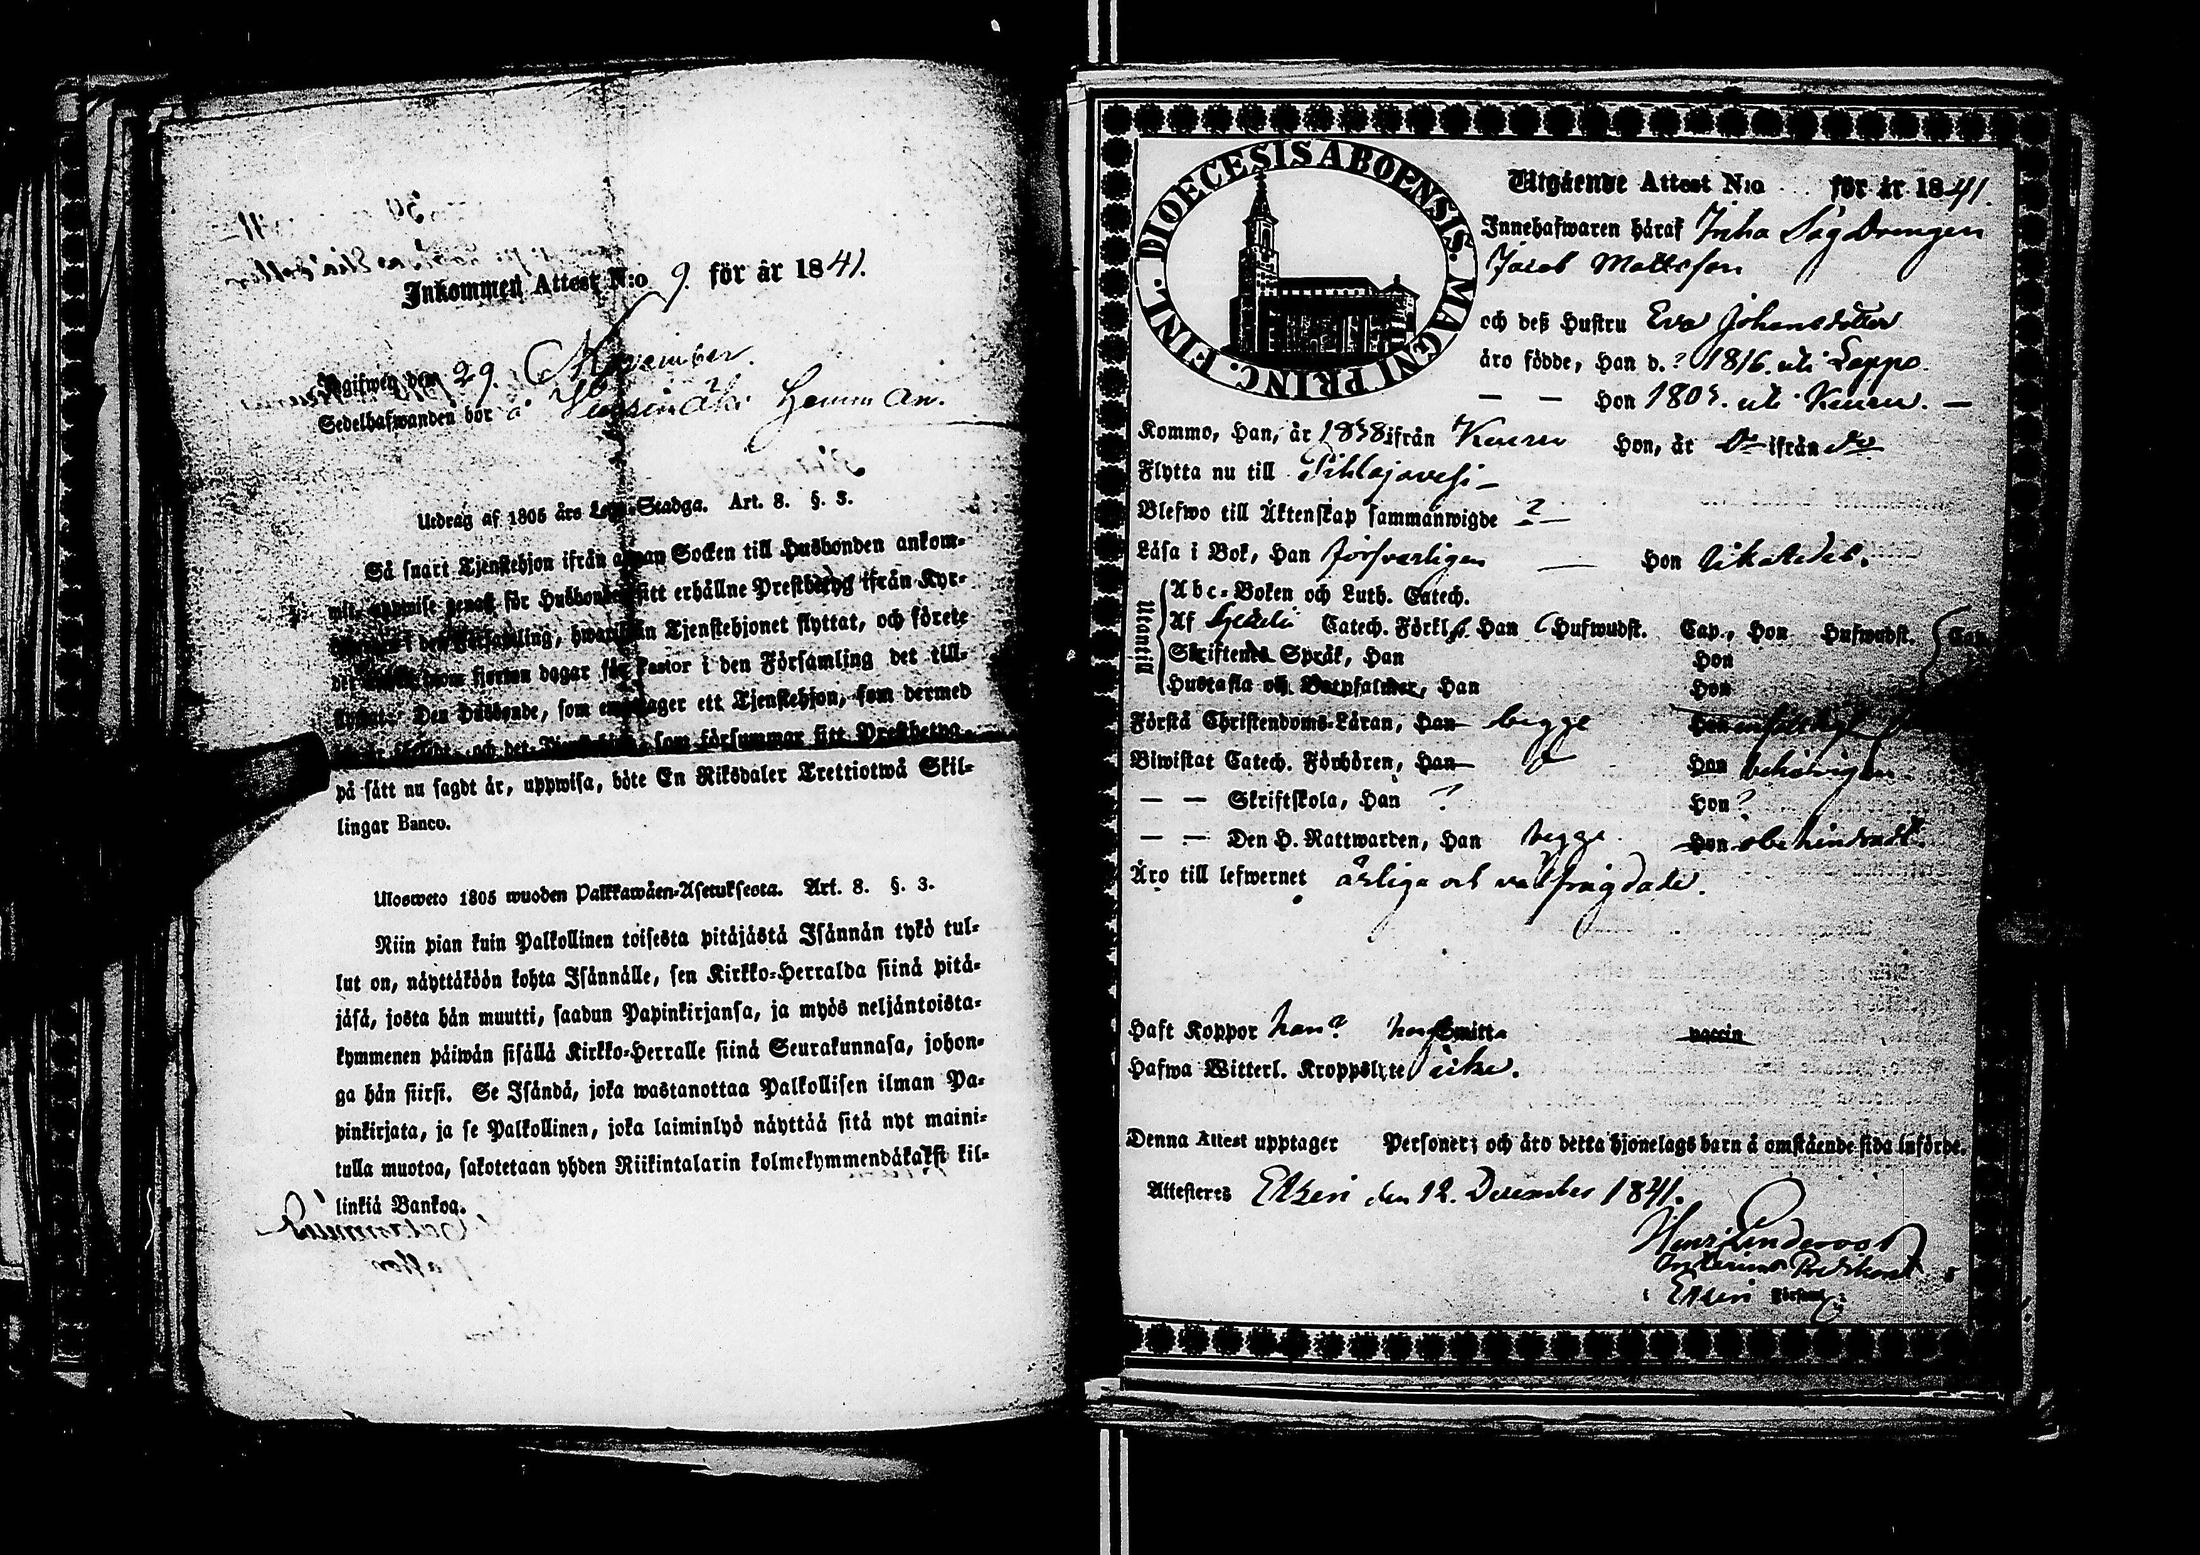 Inkommen Attest N:o 9. för år 1841.
den 29. November.
Sedelhafwanden bor å Hemman.
Utdrag af 1805 års Lego-Stadga. Art. 8. §. 3.
Så snart Tjenstehjon ifrån annan Socken till Husbonden ankom-
mit, uppwise genast för Husbonden sitt erhållne Prestbetyg ifrån Kyr-
Församling, hwarifrån Tjenstehjonet flyttat, och förete
det inom fjorton dagar för Pastor i den Församling det till-
flyttat. Den Husbonde, som emottager ett Tjenstehjon, som dermed
och det som försummar sitt Prestbetyg
på sätt nu sagdt är, uppwisa, böte En Riksdaler Trettiotwå Skil-
lingar Banco.
Ulosweto 1805 wuoden Palkkawäen-Asetuksesta. Art. 8. §. 3.
Niin pian kuin Palkollinen toisesta pitäjästä Isännän tykö tul-
lut on, näyttäköön kohta Isännälle, sen Kirkko-Herralda siinä pitä-
jäsä, josta hän muutti, saadun Papinkirjansa, ja myös neljäntoista-
kymmenen päiwän sisällä Kirkko-Herralle siinä Seurakunnasa, johon-
ga hän siirsi. Se Isändä, joka wastanottaa Palkollisen ilman Pa-
pinkirjata, ja se Palkollinen, joka laiminlyö näyttää sitä nyt maini-
tulla muotoa, sakotetaan yhden Riikintalarin kolmekymmendäkaksi kil-
linkiä Bankoa.
DIOECESIS ABOENSIS. MAGNI PRINC. FINL.
Utgående Attest N:o för år 1841.
Innehafwaren häraf Inha Såg Drengen
Jacob Mattsson
och deß Hustru Eva Johansdotter
äro födde, Han d. ? 1816. uti Lappo.
— — Hon 1805. uti Keuru. —
Kommo, Han, år 1838 ifrån Keuru Hon, år Do ifrån do
Flytta nu till Pihlajavesi —
Blefwo till Äktenskap sammanwigde ? —
Läsa i Bok, Han försvarligen — Hon likaledes.
Utantill
Abc-Boken och Luth. Catech.
Af Catech. Förkl. Han Hufwudst. Cap., Hon Hufwudst. Cap.
Skriftenes Språk, Han Hon
Hustafla och Botpsalmer, Han Hon
Förstå Christendoms-Läran, Han begge Hon enfaldigt
Biwistat Catech. Förhören, Han Hon behörigen
— — Skriftskola, Han ? Hon ?
— — Den H. Nattwarden, Han begge Hon obehindradt.
Äro till lefwernet ärliga och välfrägdade.
Haft Koppor han? hon Smitta vaccin
Hafwa Witterl. Kroppslyte icke.
Denna Attest upptager Personer; och äro detta hjonelags barn å omstående sida införde.
Attesteres Etseri den 12. December 1841.
i Etseri Församl.